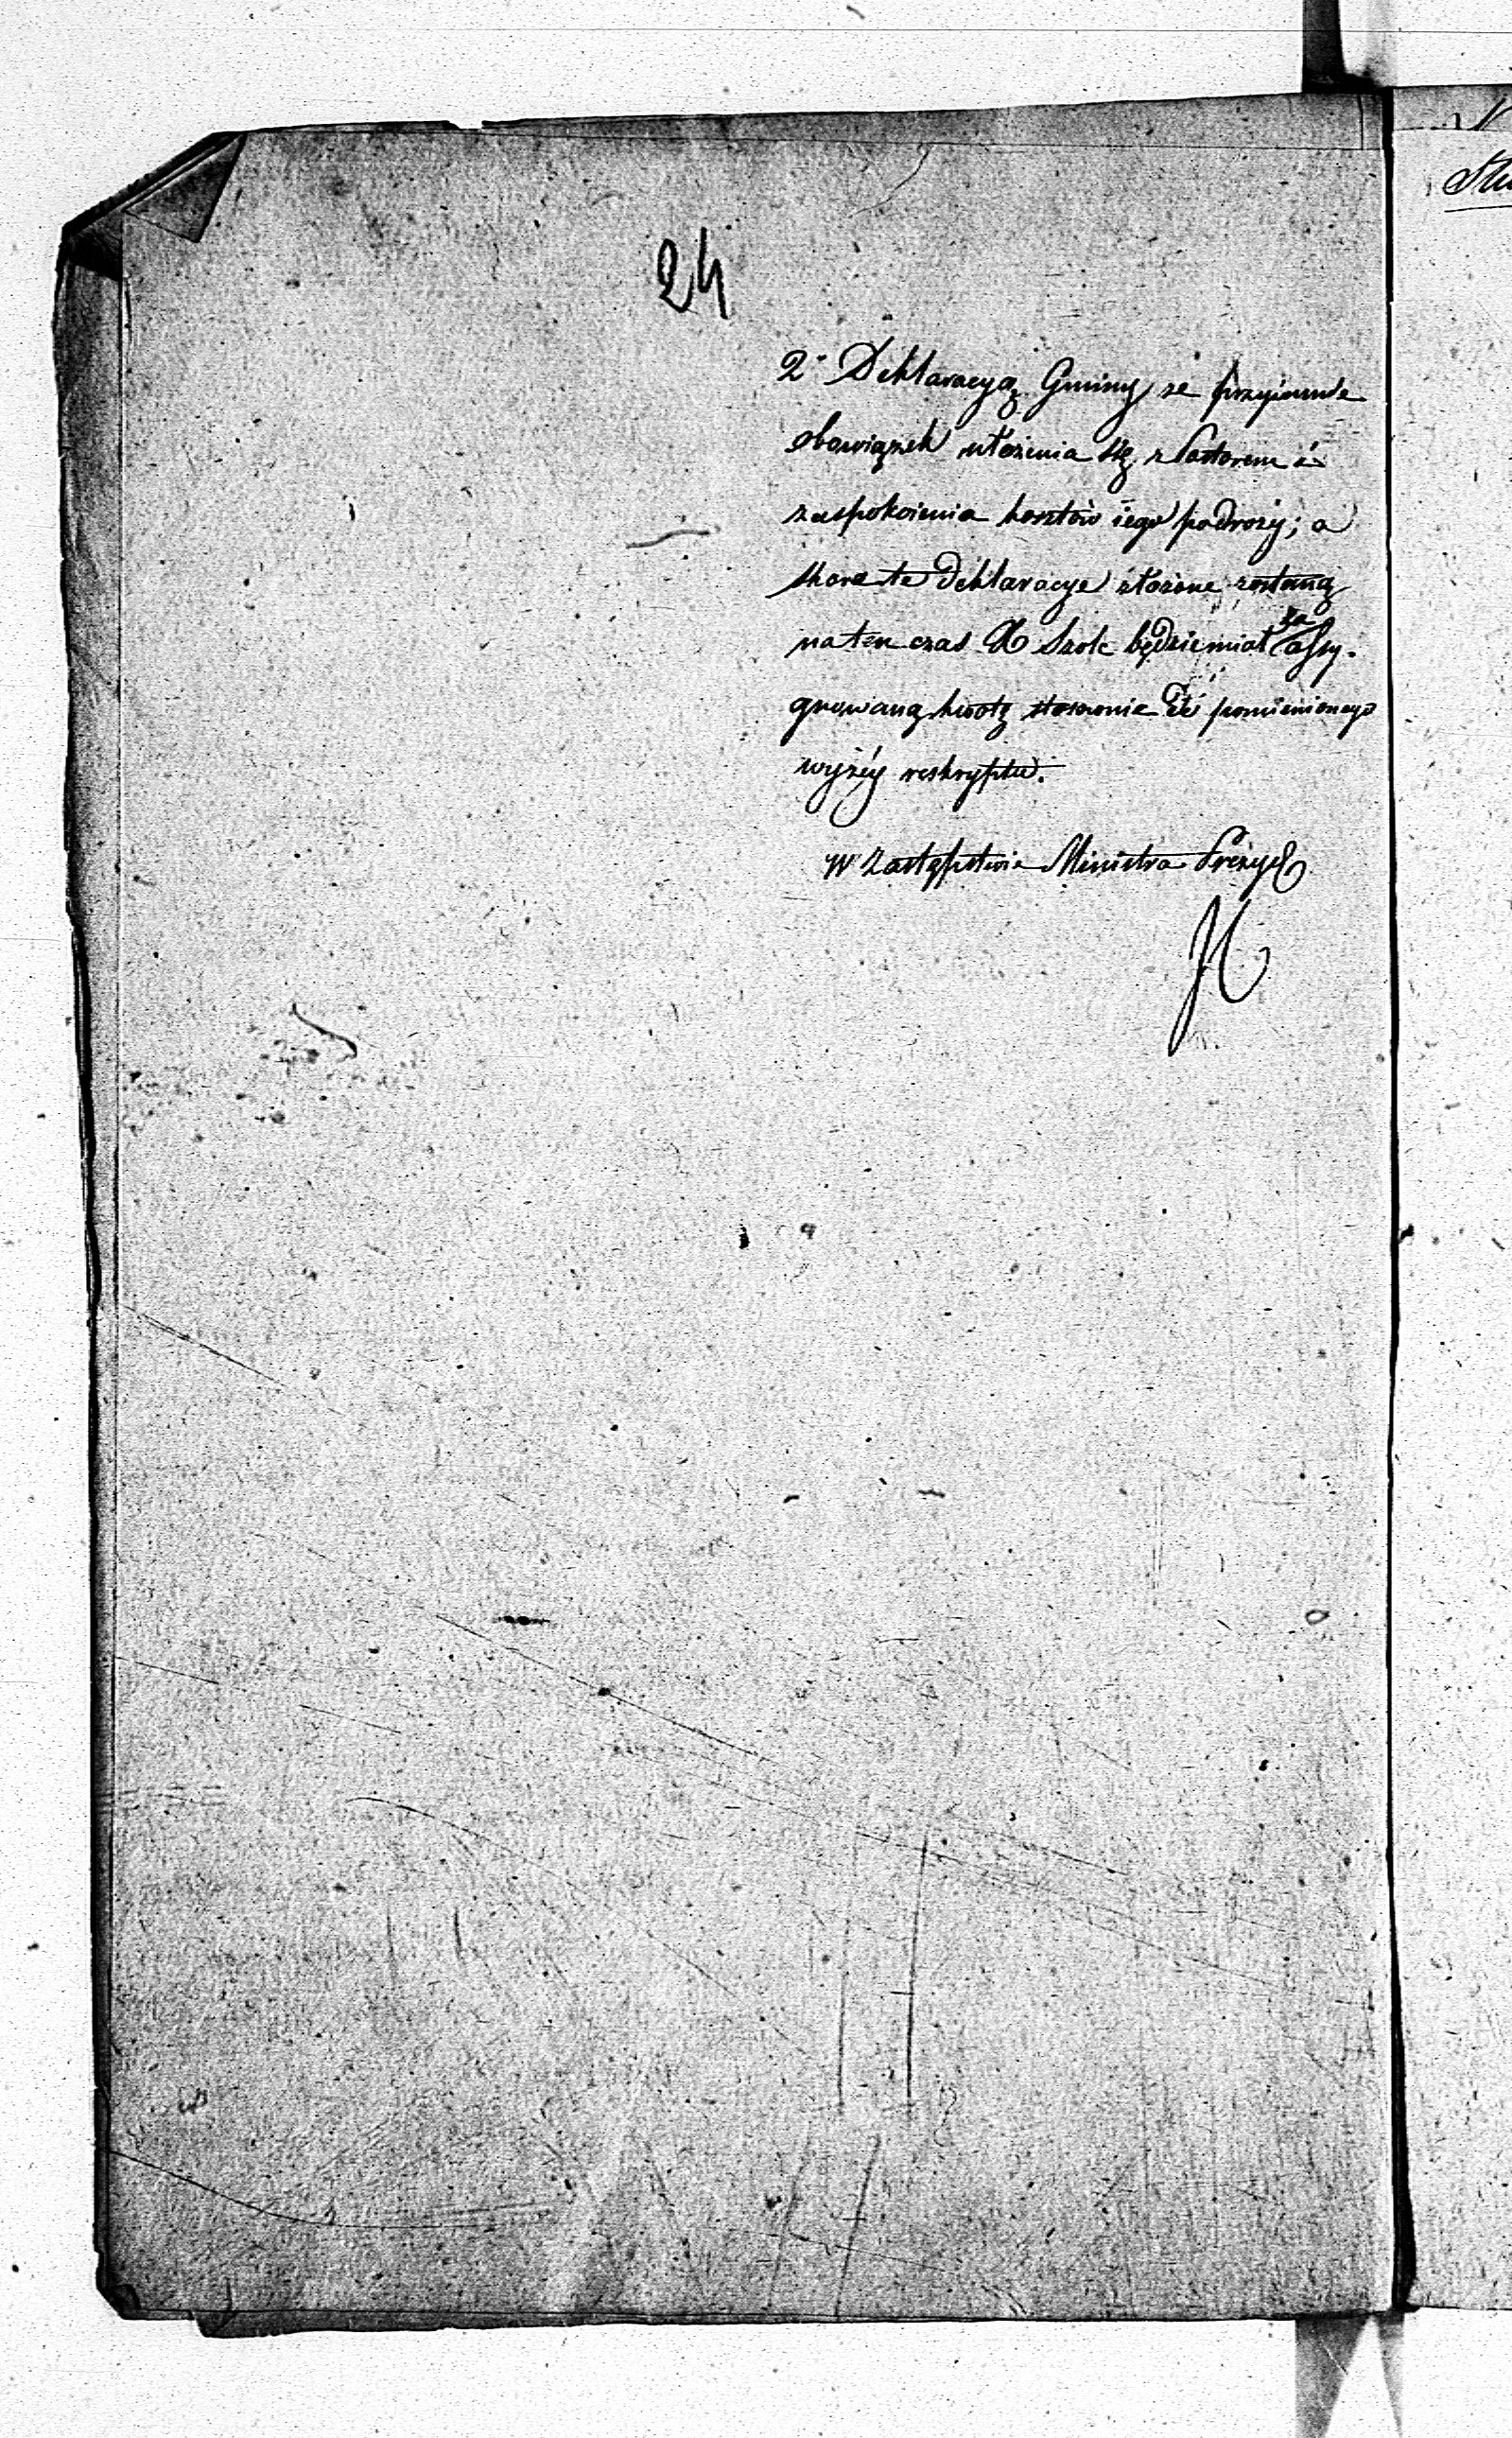 24
2° Deklaracyą Gminy że przyimuie
obowiązek ułożenia się z Pastorem i
zaspokoienia kosztów iego podroży; a
skoro te deklaracye złożone zostaną
na ten czas X Szolc będzie miał za
assy-
gnowaną kwotę stosownie do pomienionego
wyżéy reskryptu.
w Zastępstwie Ministra Prezyd